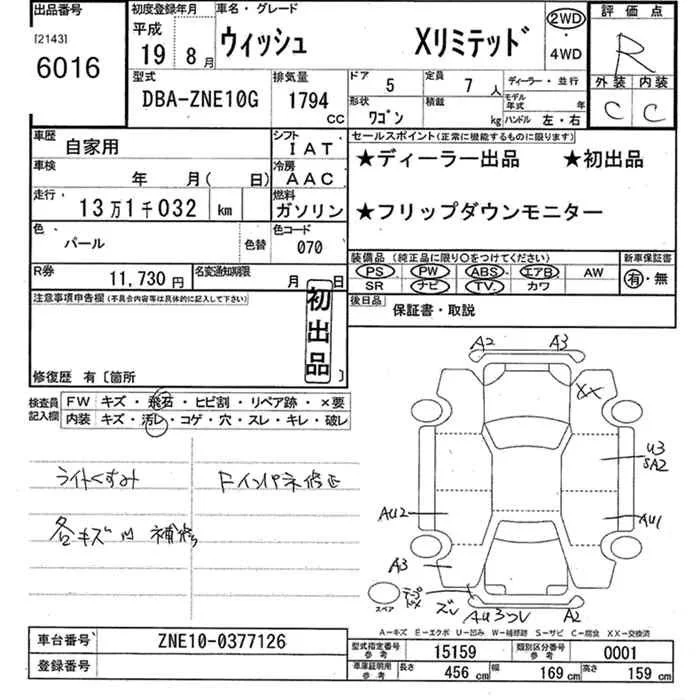 出品番号 初度登録年月 車名・グレード 2WD 評価点
[2143] 平成
6016 19 8月 ウィッシュ Xリミテッド ・ R
4WD
型式 排気量 ドア 5 定員 7人 ディーラー・並行 外装 内装
DBA-ZNE10G 1794 CC 形状 ワゴン 積載 kg モデル年式 年 C C
ハンドル 左・右
車歴 自家用 シフト IAT セールスポイント(正常に機能するものに限ります)
車検 年 月( 日) 冷房 AAC ★ディーラー出品 ★初出品
走行 13万1千032 km 燃料 ガソリン ★フリップダウンモニター
色 パール 色替 色コード 070
装備品 (純正品に限り○をつけてください) 新車保証書
PS PW ABS エアB AW 有・無
SR ナビ TV カワ
R券 11,730円 名変通知期限 月 日
後日品 保証書・取説
注意事項申告欄(不具合内容等は具体的に記入して下さい)
初出品
修復歴 有〔箇所 〕
検査員記入欄 FW キズ・飛石・ヒビ割・リペア跡・×要
内装 キズ・汚レ・コゲ・穴・スレ・キレ・破レ
ライトくすみ Fインパネ修正
各キズ凹 補修
A2 A3
XX
U3
SA2
AU2 AU1
A3
スペア ズレ AU3 A2
A-キズ E-エクボ U-凹み W-補修跡 S-サビ C-腐食 XX-交換済
車台番号 ZNE10-0377126
登録番号
型式指定番号 参考 15159 類別区分番号 参考 0001
車庫証明用 参考 長さ 456 cm 幅 169 cm 高さ 159 cm